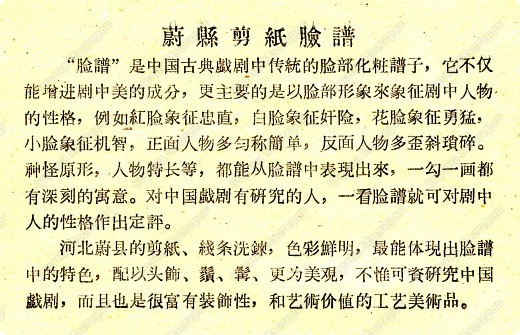 蔚縣剪紙臉譜
“脸譜”是中国古典戱剧中传統的脸部化粧譜子，它不仅
能增进剧中美的成分，更主要的是以脸部形象來象征剧中人物
的性格，例如紅脸象征忠直，白脸象征奸险，花脸象征勇猛，
小脸象征机智，正面人物多匀称簡单，反面人物多歪斜瑣碎。
神怪原形，人物特长等，都能从脸譜中表現出來，一勾一画都
有深刻的寓意。对中国戱剧有硏究的人，一看脸譜就可对剧中
人的性格作出定評。
河北蔚县的剪紙、綫条洗鍊，色彩鮮明，最能体現出脸譜
中的特色，配以头飾、鬚、髯、更为美观，不惟可資硏究中国
戱剧，而且也是很富有装飾性，和艺術价値的工艺美術品。